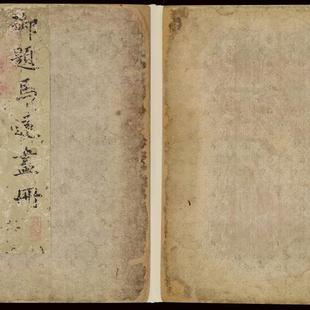 御題馬遠畫冊